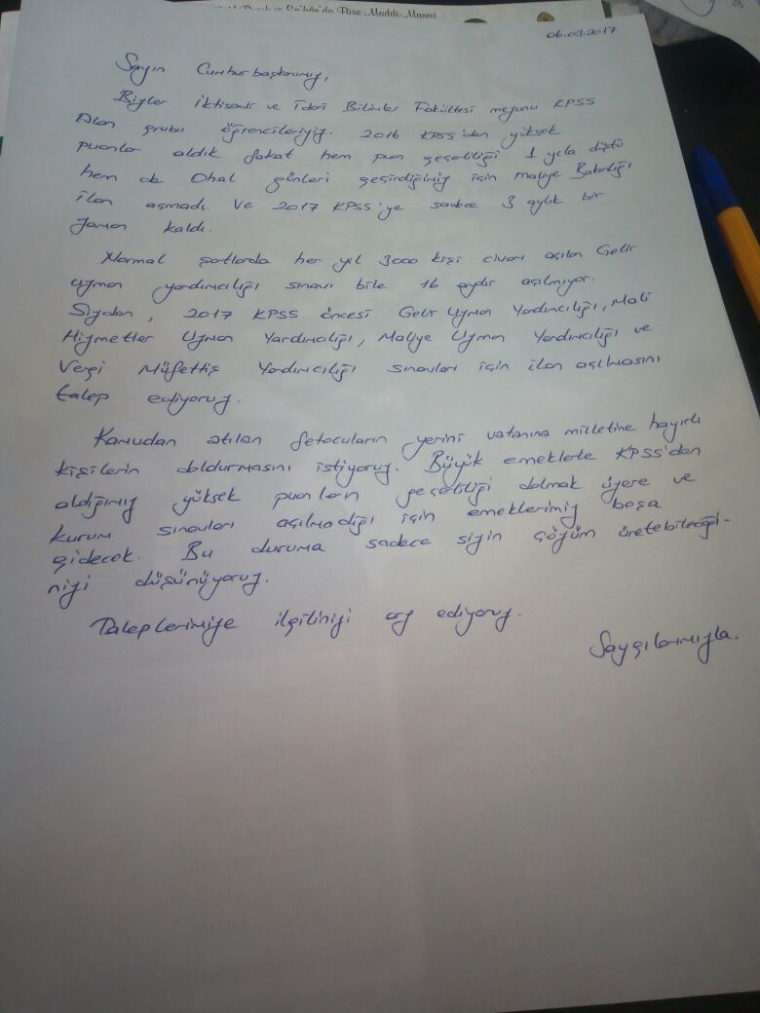 Sa'bân'da Bize Maddi-Manevi
06.03.2017
Sayın Cumhurbaşkanımız,
Bizler İktisadi ve İdari Bilimler Fakültesi mezunu KPSS
Alan grubu öğrencileriyiz. 2016 KPSS'den yüksek
puanlar aldık fakat hem puan geçerliliği 1 yıla düştü
hem de Ohal günleri geçirdiğimiz için maliye Bakanlığı
ilan açmadı ve 2017 KPSS'ye sadece 3 aylık bir
zaman kaldı.
Normal şartlarda her yıl 3000 kişi civarı açılan Gelir
uzman yardımcılığı sınavı bile 16 aydır açılmıyor.
Sizden, 2017 KPSS öncesi Gelir Uzman Yardımcılığı, Mali
Hizmetler Uzman Yardımcılığı, Maliye Uzman Yardımcılığı ve
Vergi Müfettiş Yardımcılığı sınavları için ilan açılmasını
talep ediyoruz.
Kamudan atılan fetocuların yerini vatanına milletine hayırlı
kişilerin doldurmasını istiyoruz. Büyük emeklerle KPSS'den
aldığımız yüksek puanların geçerliliği dolmak üzere ve
kurum sınavları açılmadığı için emeklerimiz boşa
gidecek. Bu duruma sadece sizin çözüm üretebileceği-
nizi düşünüyoruz.
Taleplerimize ilgilinizi arz ediyoruz.
Saygılarımızla.